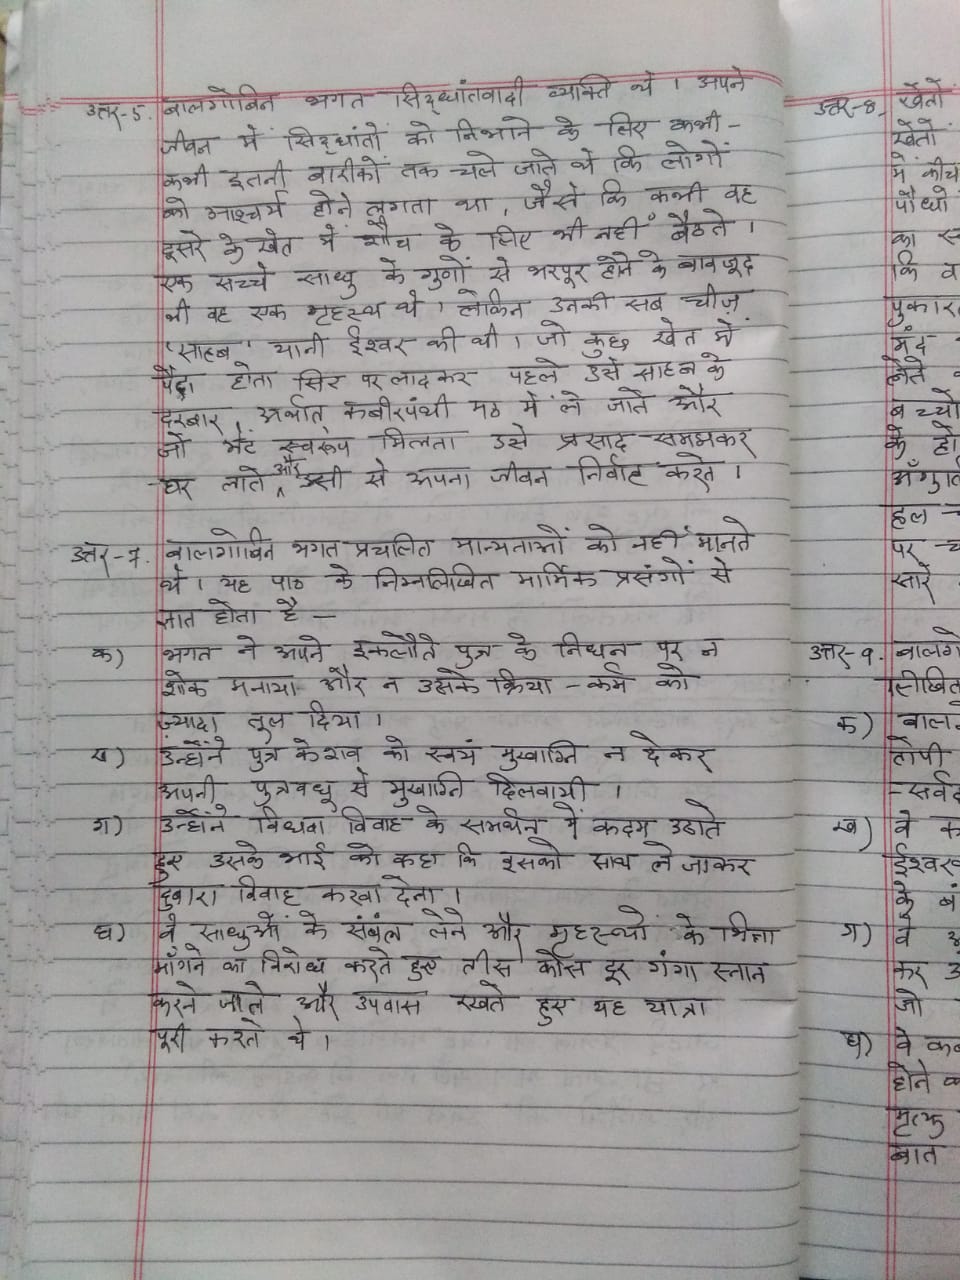 उत्तर-5. बालगोबिन भगत सिद्धांतवादी व्यक्ति थे। अपने
जीवन में सिद्धांतों को निभाने के लिए कभी-
कभी इतनी बारीकों तक चले जाते थे कि लोगों
को आश्चर्य होने लगता था, जैसे कि कभी वह
दूसरे के खेत में शौच के लिए भी नहीं बैठते।
एक सच्चे साधु के गुणों से भरपूर होने के बावजूद
भी वह एक गृहस्थ थे। लेकिन उनकी सब चीज़
'साहब' यानी ईश्वर की थी। जो कुछ खेत में
पैदा होता सिर पर लादकर पहले उसे साहब के
दरबार, अर्थात् कबीरपंथी मठ में ले जाते और
जो भेंट स्वरूप मिलता उसे प्रसाद समझकर
घर लाते और उसी से अपना जीवन निर्वाह करते।
उत्तर-7. बालगोबिन भगत प्रचलित मान्यताओं को नहीं मानते
थे। यह पाठ के निम्नलिखित मार्मिक प्रसंगों से
ज्ञात होता है -
क) भगत ने अपने इकलौते पुत्र के निधन पर न
शोक मनाया और न उसके क्रिया-कर्म को
ज़्यादा तूल दिया।
ख) उन्होंने पुत्र के शव को स्वयं मुखाग्नि न देकर
अपनी पुत्रवधू से मुखाग्नि दिलवायी।
ग) उन्होंने विधवा विवाह के समर्थन में कदम उठाते
हुए उसके भाई को कहा कि इसको साथ ले जाकर
दुबारा विवाह करवा देना।
घ) वे साधुओं के संबल लेने और गृहस्थों के भिक्षा
माँगने का विरोध करते हुए तीस कोस दूर गंगा स्नान
करने जाते और उपवास रखते हुए यह यात्रा
पूरी करते थे।
उत्तर-8. खेतों
खेतों
में कीच
पौधों
का स्
कि व
पुकार
मंद
लेते
बच्चों
के हो
अँगुलि
हल
पर
सारे
उत्तर-9. बालगो
लिखित
क) बाल
टोपी
सर्वद
ख) वे क
ईश्वर
के बं
ग) वे अ
कर उ
जो
घ) वे कब
होने क
मृत्यु
बात